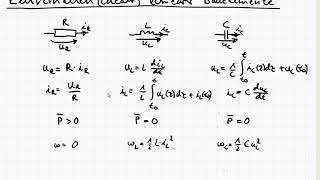 (ideale) lineare Bauelemente
R L C
i_R i_L i_C
u_R u_L u_C
u_R = R · i_R u_L = L di_L/dt u_C = 1/C ∫_{t_0}^{t} i_C(τ)dτ + u_C(t_0)
i_R = u_R/R i_L = 1/L ∫_{t_0}^{t} u_L(τ)dτ + i_L(t_0) i_C = C du_C/dt
P̄ > 0 P̄ = 0 P̄ = 0
w = 0 w_L = 1/2 L · i_L² w_C = 1/2 C u_C²